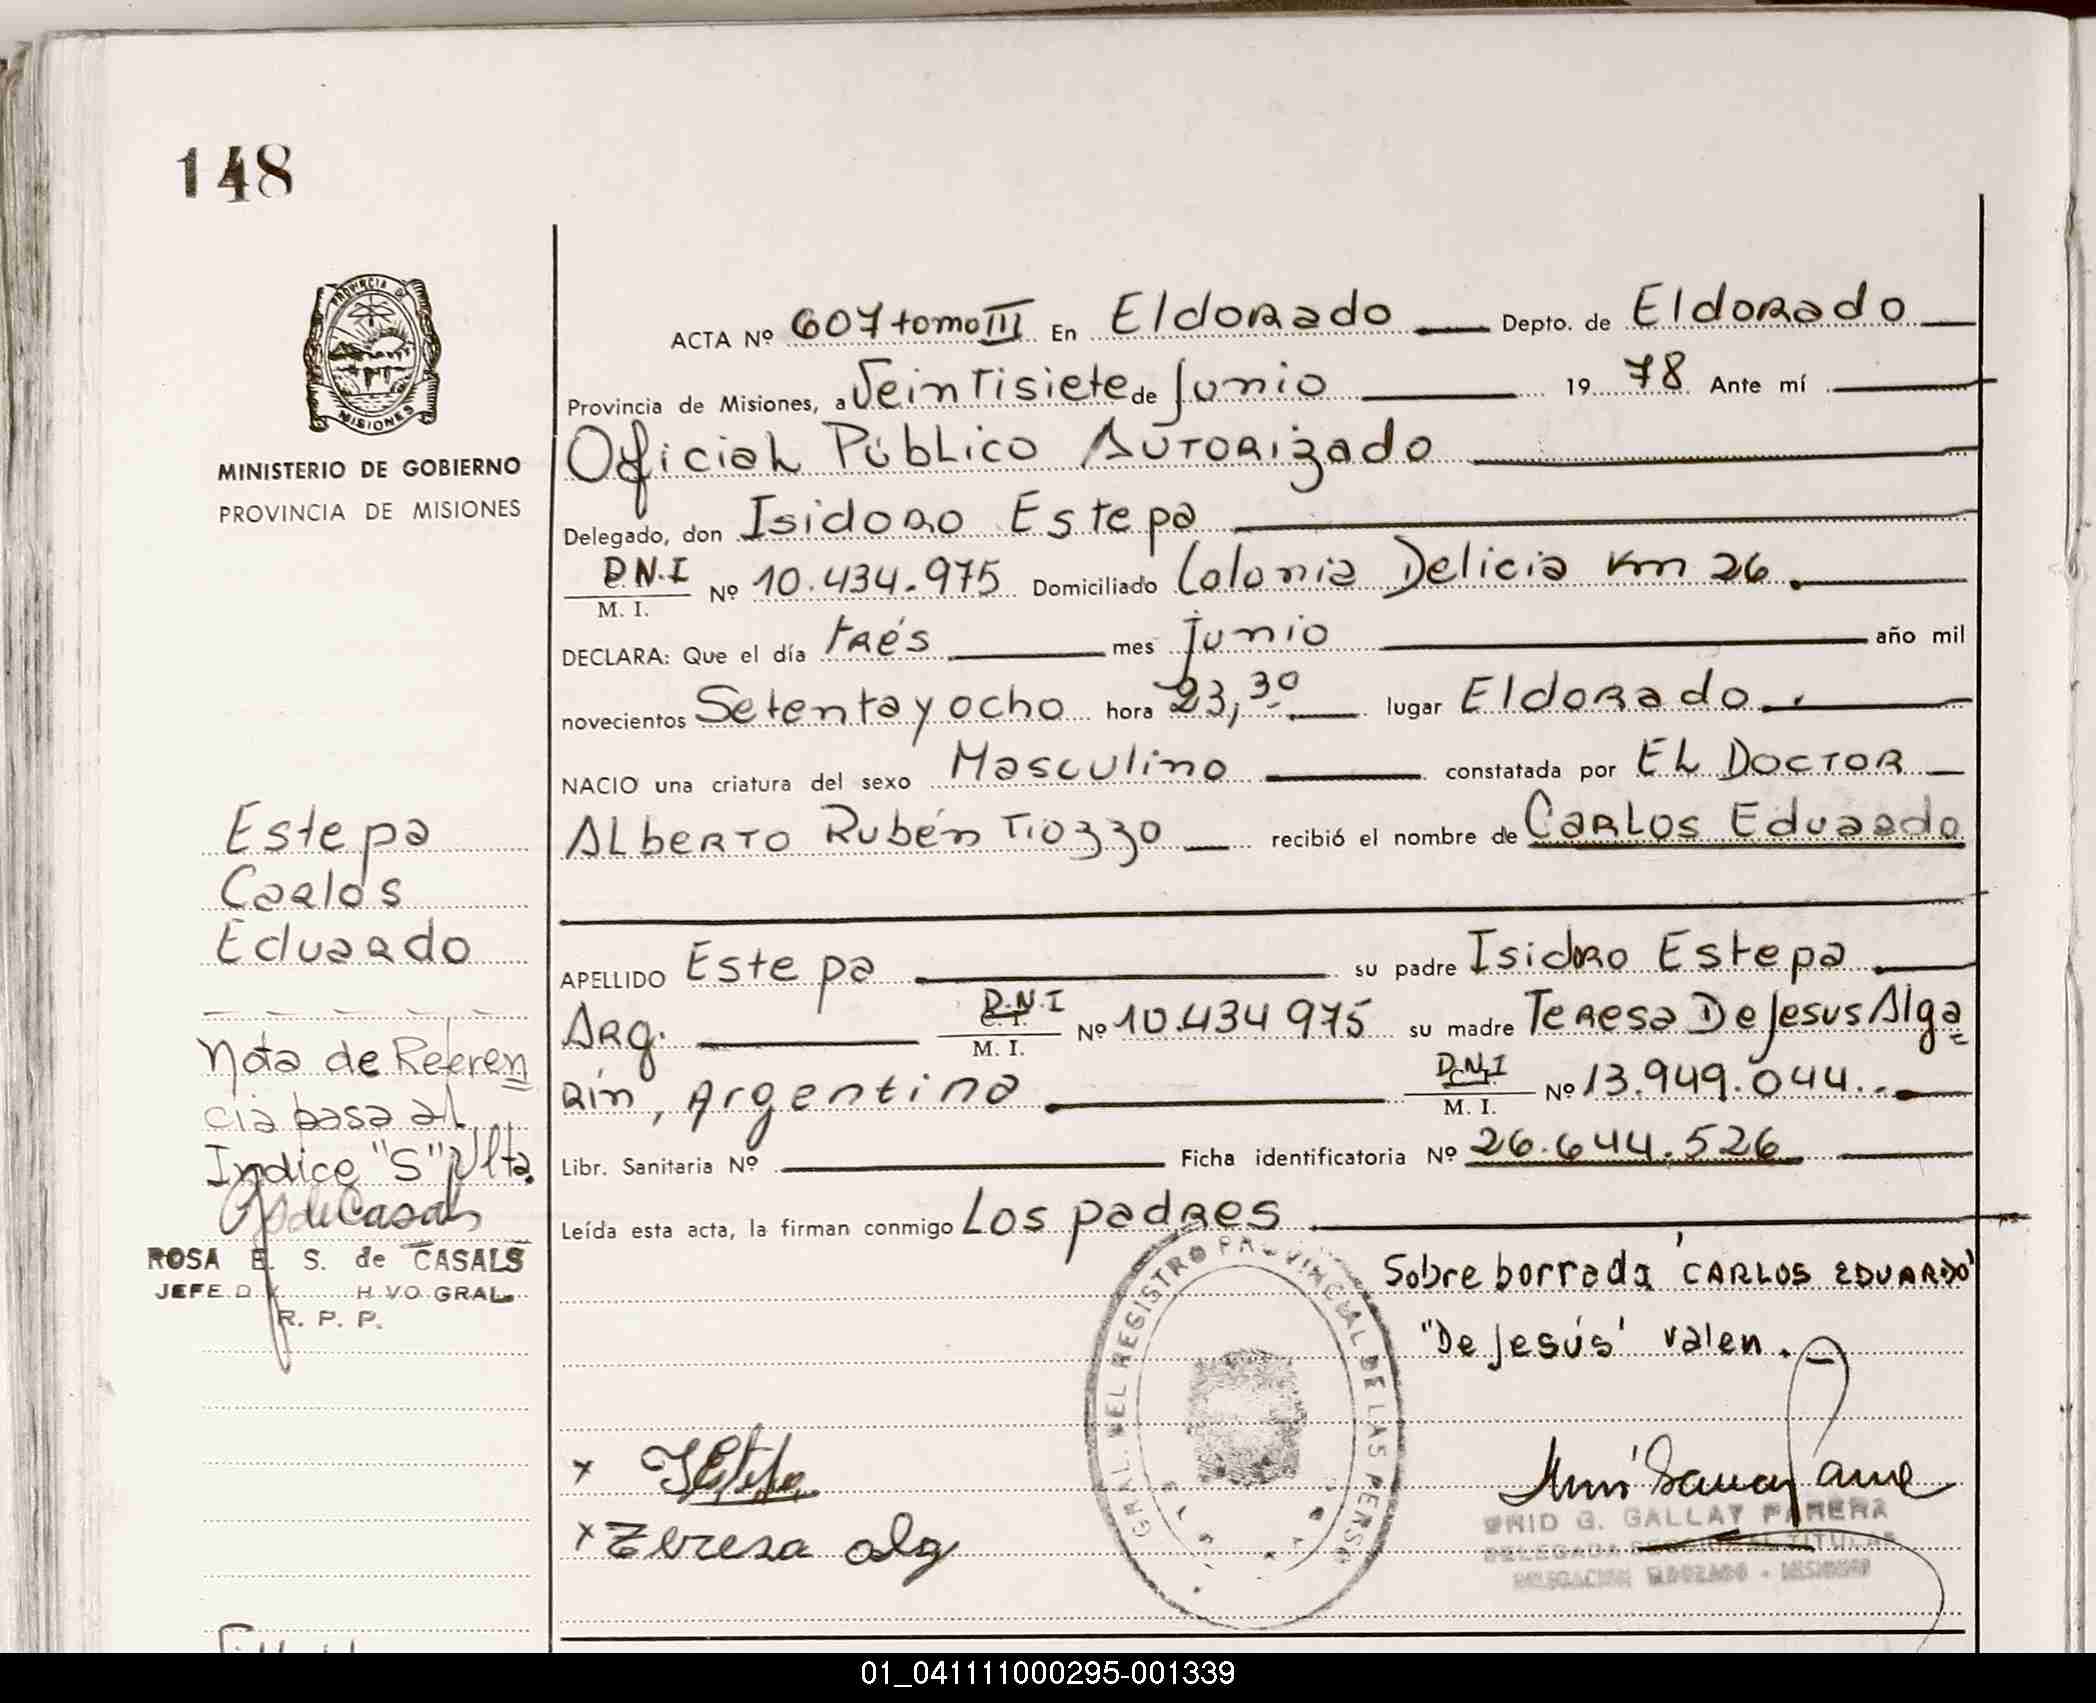 148
PROVINCIA D
MISIONES
MINISTERIO DE GOBIERNO
PROVINCIA DE MISIONES
ACTA Nº 607 tomo III En Eldorado Depto. de Eldorado
Provincia de Misiones, a Veintisiete de Junio 19 78 Ante mí
Oficial Público Autorizado
Delegado, don Isidoro Estepa
D.N.I
M. I. Nº 10.434.975 Domiciliado Colonia Delicia Km 26
DECLARA: Que el día trés mes Junio año mil
novecientos Setenta y ocho hora 23,30 lugar Eldorado
NACIO una criatura del sexo Masculino constatada por El Doctor
Alberto Rubén Tiozzo recibió el nombre de Carlos Eduardo
APELLIDO Estepa su padre Isidro Estepa
Arg. D.N.I M. I. Nº 10.434 975 su madre Teresa De Jesus Alga=
rín, Argentina D.N.I M. I. Nº 13.949.044
Libr. Sanitaria Nº Ficha identificatoria Nº 26.644.526
Leída esta acta, la firman conmigo Los padres
Sobre borrada "CARLOS EDUARDO"
"De Jesús" valen.
Estepa
Carlos
Eduardo
Nota de Referen
cia pasa al
Indice "S" Vlta.
ROSA E. S. de CASALS
JEFE D HVO GRAL.
R. P. P.
GRAL. DEL REGISTRO PROVINCIAL DE LAS PERSO
x
x Teresa alg
ENID G. GALLAY PARERA
DELEGADA TITULAR
DELEGACION ELDORADO - MISIONES
01_041111000295-001339